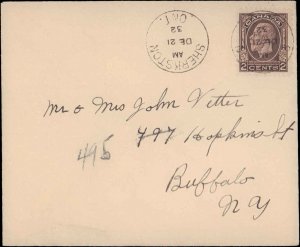 SHERKSTON
AM
DE 21
32
ONT.
CANADA
2 CENTS 2
Mr & Mrs John Vetter
797 Hopkins St
495
Buffalo
N Y